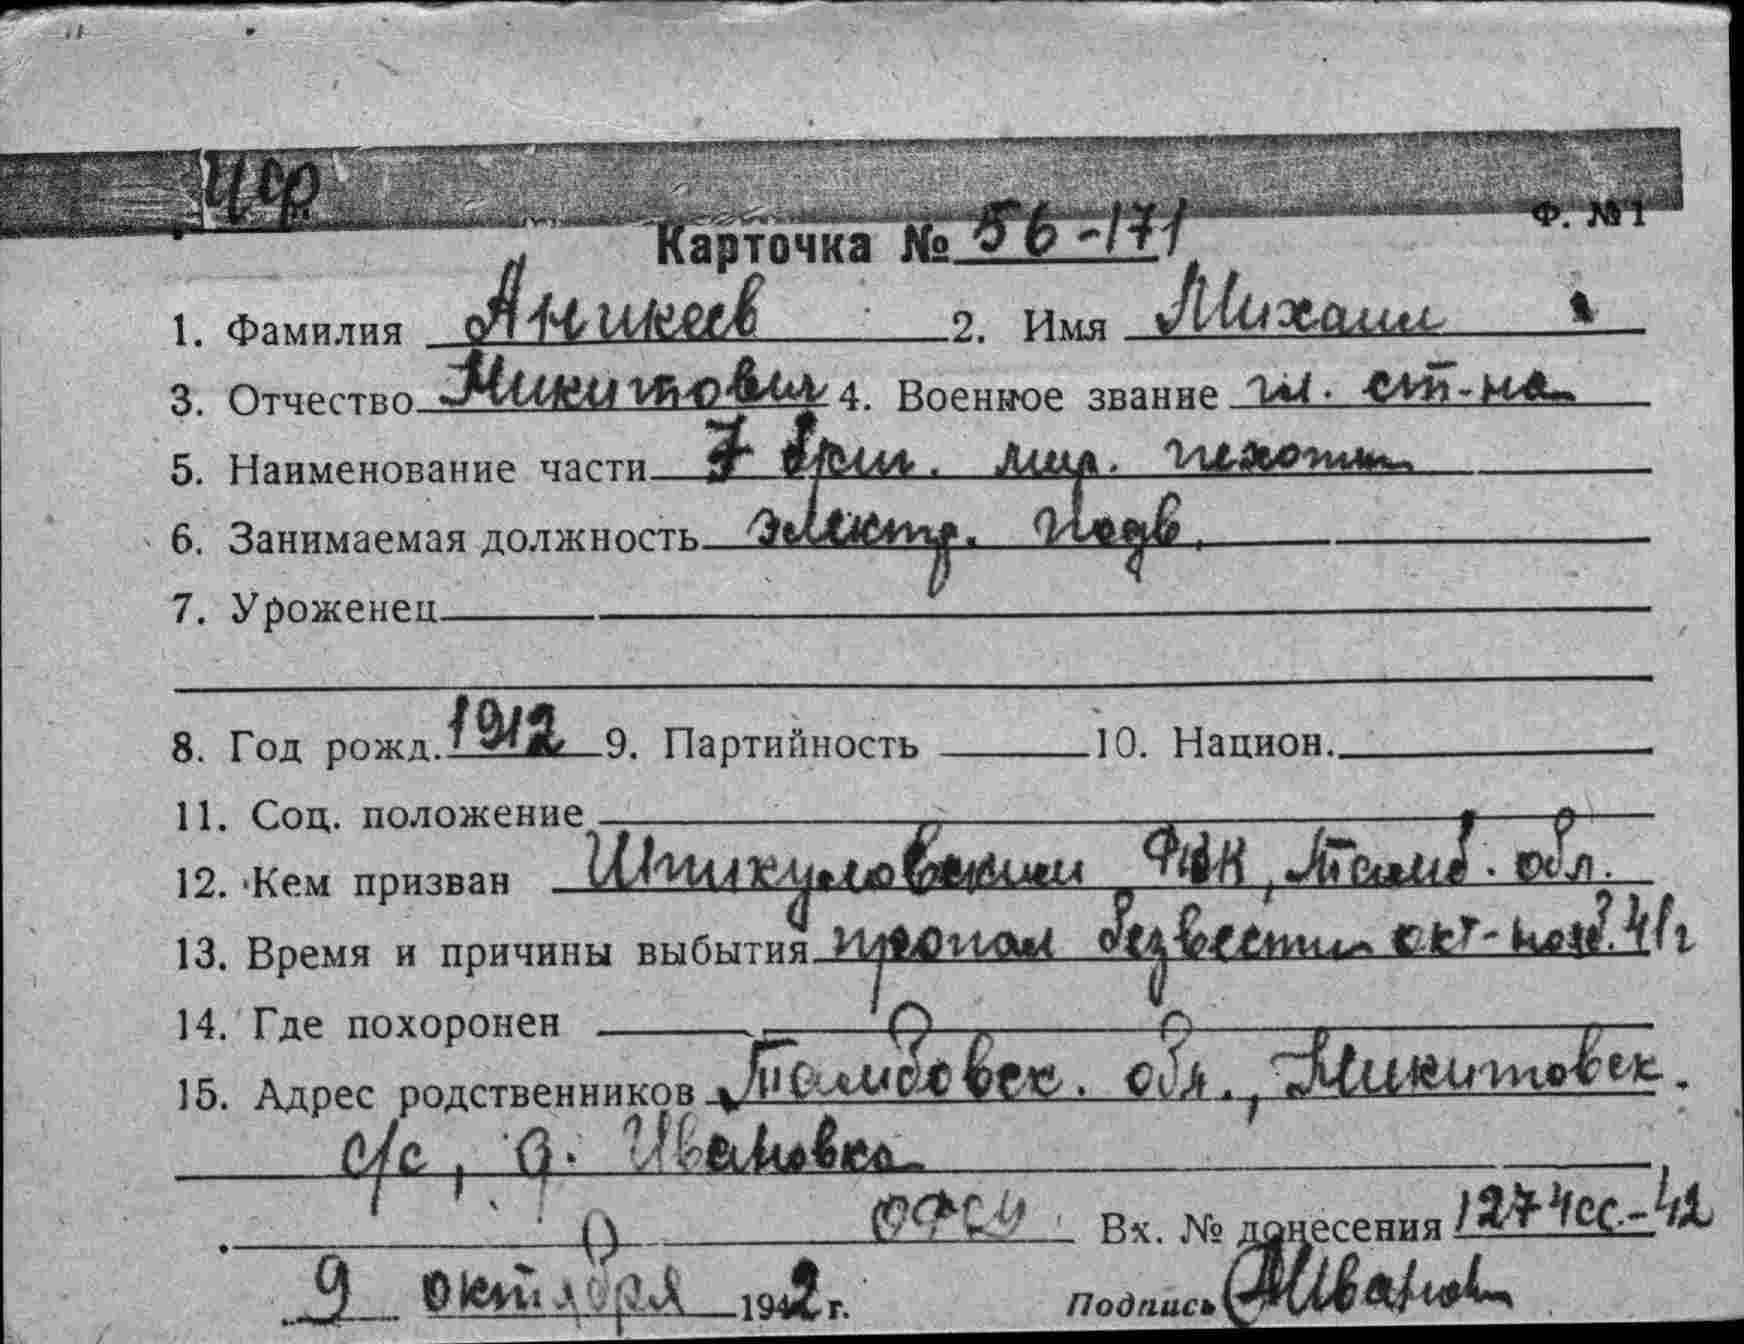 Ф. № 1
Карточка № 56-171
1. Фамилия Аникеев 2. Имя Михаил
3. Отчество Никитович 4. Военное звание гл. ст-на
5. Наименование части 7 бриг. мор. пехоты
6. Занимаемая должность электр. подв.
7. Уроженец
8. Год рожд. 1912 9. Партийность 10. Национ.
11. Соц. положение
12. Кем призван Шпикуловским РВК, Тамб. обл.
13. Время и причины выбытия пропал безвести окт-нояб. 41г
14. Где похоронен
15. Адрес родственников Тамбовск. обл., Никитовск.
с/с, д. Ивановка
Вх. № донесения 1274сс-42
9 октября 1942 г. Подпись Иванов